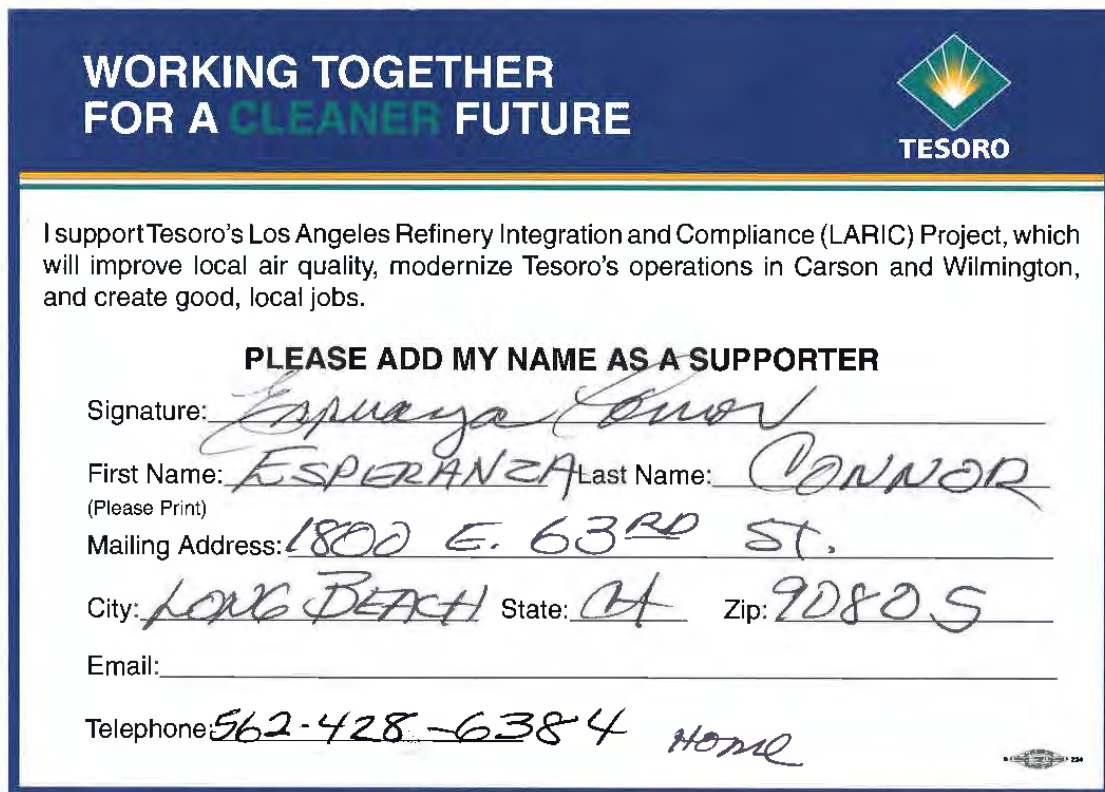 WORKING TOGETHER
FOR A CLEANER FUTURE
TESORO
I support Tesoro's Los Angeles Refinery Integration and Compliance (LARIC) Project, which
will improve local air quality, modernize Tesoro's operations in Carson and Wilmington,
and create good, local jobs.
PLEASE ADD MY NAME AS A SUPPORTER
Signature: Esperanza Connor
First Name: ESPERANZA Last Name: CONNOR
(Please Print)
Mailing Address: 1800 E. 63RD ST.
City: LONG BEACH State: CA Zip: 90805
Email:
Telephone: 562-428-6384 Home
234